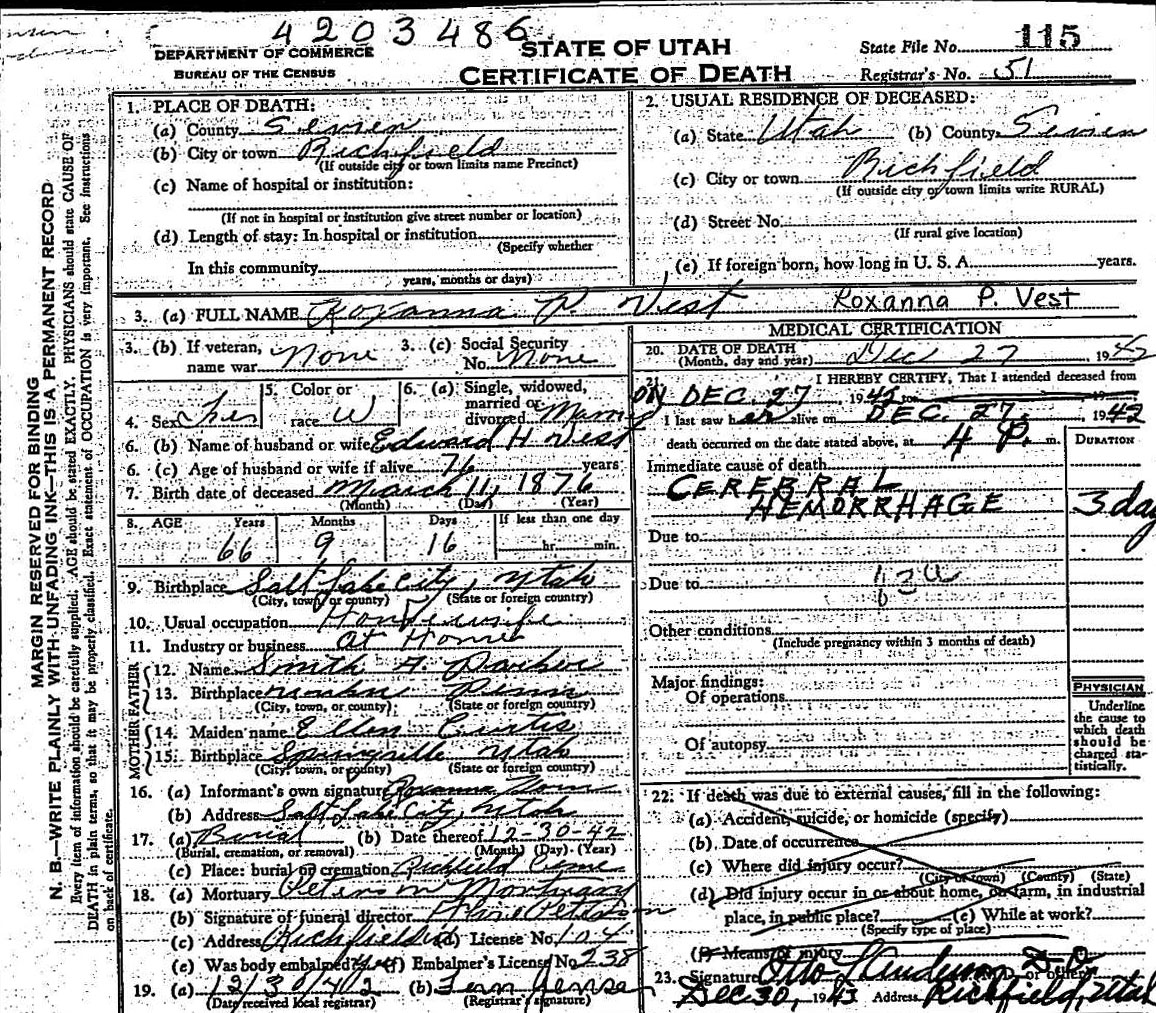 4203486
DEPARTMENT OF COMMERCE
BUREAU OF THE CENSUS
STATE OF UTAH
CERTIFICATE OF DEATH
State File No. 115
Registrar's No. 51
MARGIN RESERVED FOR BINDING
N. B.—WRITE PLAINLY WITH UNFADING INK—THIS IS A PERMANENT RECORD
Every item of information should be carefully supplied. AGE should be stated EXACTLY. PHYSICIANS should state CAUSE OF
DEATH in plain terms, so that it may be properly classified. Exact statement of OCCUPATION is very important. See instructions
on back of certificate.
1. PLACE OF DEATH:
(a) County Sevier
(b) City or town Richfield
(If outside city or town limits name Precinct)
(c) Name of hospital or institution:
(If not in hospital or institution give street number or location)
(d) Length of stay: In hospital or institution
(Specify whether
In this community
years, months or days)
2. USUAL RESIDENCE OF DECEASED:
(a) State Utah (b) County Sevier
(c) City or town Richfield
(If outside city or town limits write RURAL)
(d) Street No.
(If rural give location)
(e) If foreign born, how long in U. S. A. years.
3. (a) FULL NAME Roxanna P. Vest Roxanna P. Vest
3. (b) If veteran, name war None 3. (c) Social Security No. None
4. Sex 5. Color or race W 6. (a) Single, widowed, married or divorced Married
6. (b) Name of husband or wife Edward H Vest
6. (c) Age of husband or wife if alive 76 years
7. Birth date of deceased March 11, 1876
(Month) (Day) (Year)
8. AGE Years Months Days If less than one day
66 9 16 hr. min.
9. Birthplace Salt Lake City, Utah
(City, town, or county) (State or foreign country)
10. Usual occupation Housewife
11. Industry or business At Home
FATHER
12. Name Smith A. Parker
13. Birthplace Penn
(City, town, or county) (State or foreign country)
MOTHER
14. Maiden name Ellen Curtis
15. Birthplace Springville Utah
(City, town, or county) (State or foreign country)
16. (a) Informant's own signature Roxanna
(b) Address Salt Lake City, Utah
17. (a) Burial (b) Date thereof 12-30-42
(Burial, cremation, or removal) (Month) (Day) (Year)
(c) Place: burial or cremation Richfield Ceme
18. (a) Mortuary Peterson Mortuary
(b) Signature of funeral director Peterson
(c) Address Richfield (d) License No. 104
(e) Was body embalmed? yes (f) Embalmer's License No. 238
19. (a) 12/30/42 (b) Fern Jensen
(Date received local registrar) (Registrar's signature)
MEDICAL CERTIFICATION
20. DATE OF DEATH
(Month, day and year) Dec 27, 1942
21. I HEREBY CERTIFY, That I attended deceased from
ON DEC. 27 1942 to 19
I last saw her alive on DEC. 27, 1942
death occurred on the date stated above, at 4 P. m.
DURATION
Immediate cause of death
CEREBRAL
HEMORRHAGE 3 day
Due to
Due to
Other conditions
(Include pregnancy within 3 months of death)
Major findings:
Of operations
Of autopsy
PHYSICIAN
Underline
the cause to
which death
should be
charged sta-
tistically.
22. If death was due to external causes, fill in the following:
(a) Accident, suicide, or homicide (specify)
(b) Date of occurrence
(c) Where did injury occur?
(City or town) (County) (State)
(d) Did injury occur in or about home, on farm, in industrial
place, in public place? (e) While at work?
(Specify type of place)
(f) Means of injury
23. Signature Otto (M. D. or other)
Dec 30, 1942 Address Richfield, Utah